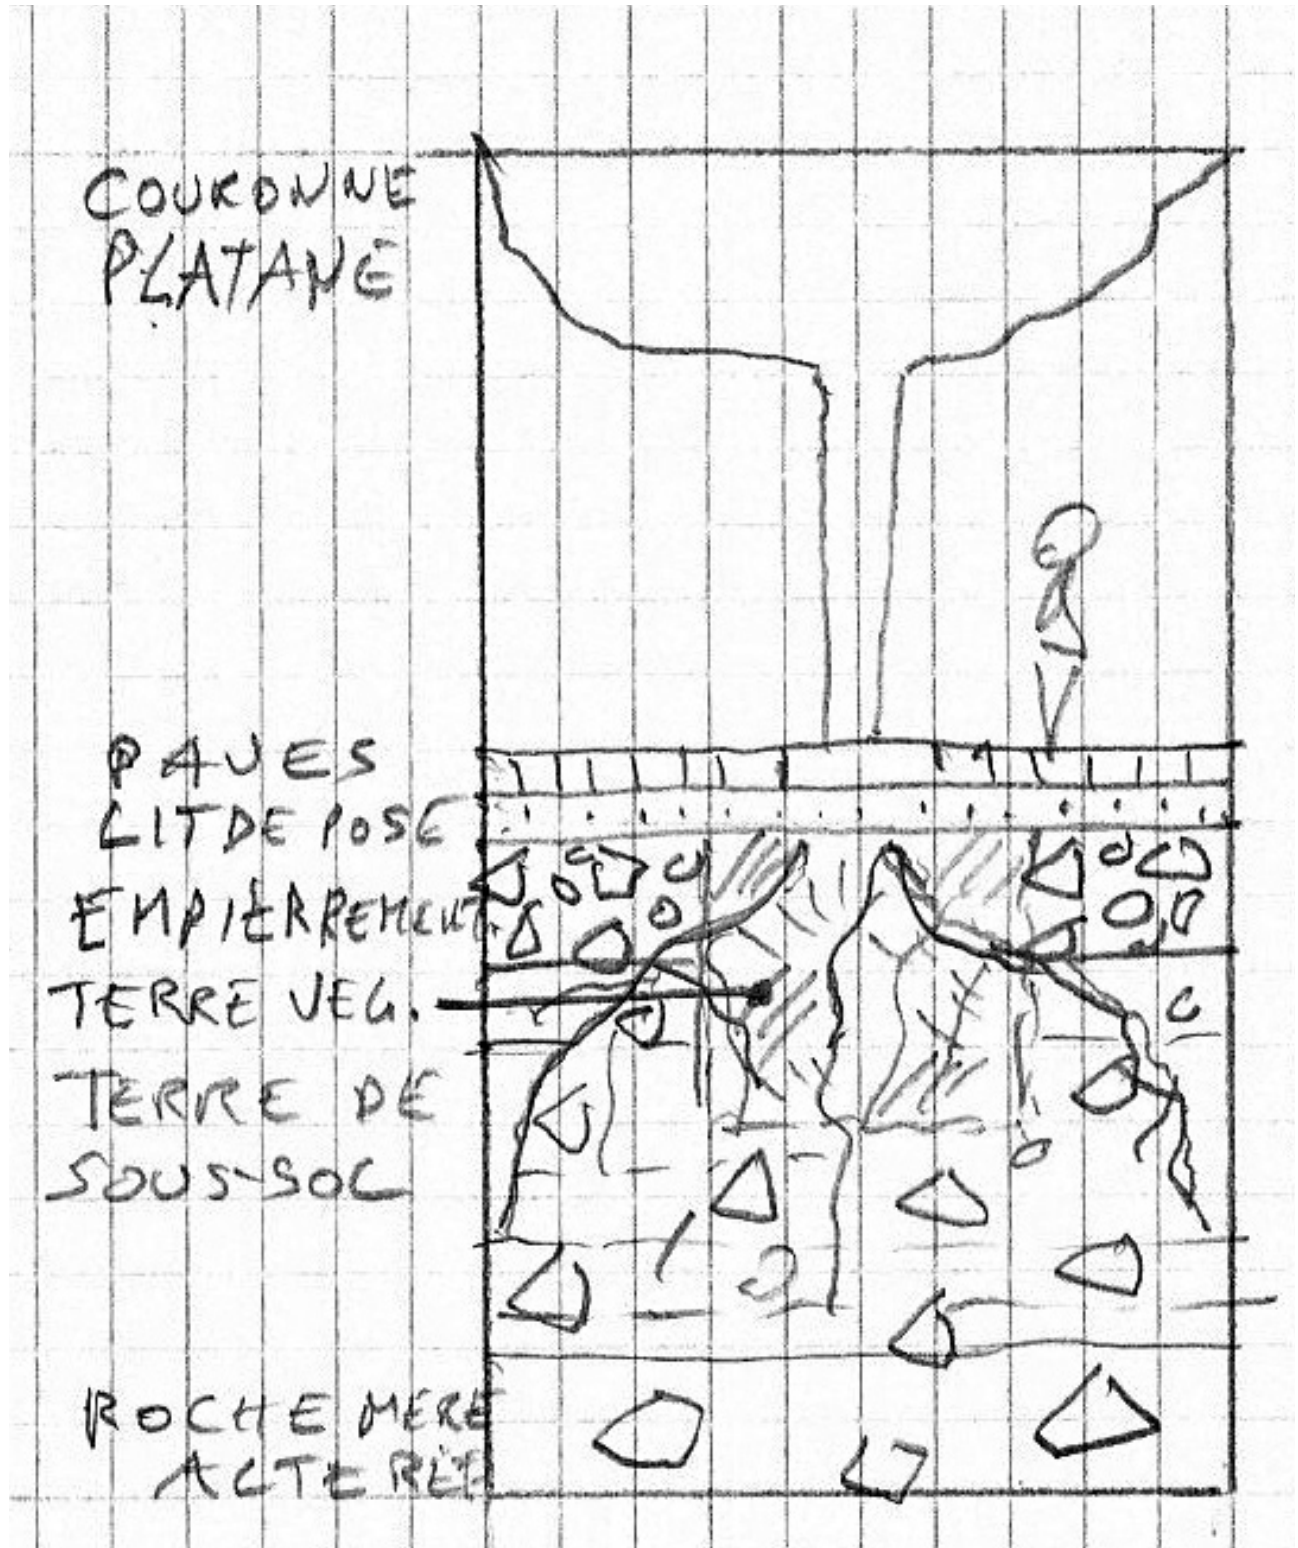 COURONNE
PLATANE
PAVES
LIT DE POSE
EMPIERREMENT
TERRE VEG.
TERRE DE
SOUS-SOL
ROCHE MERE
ALTEREE